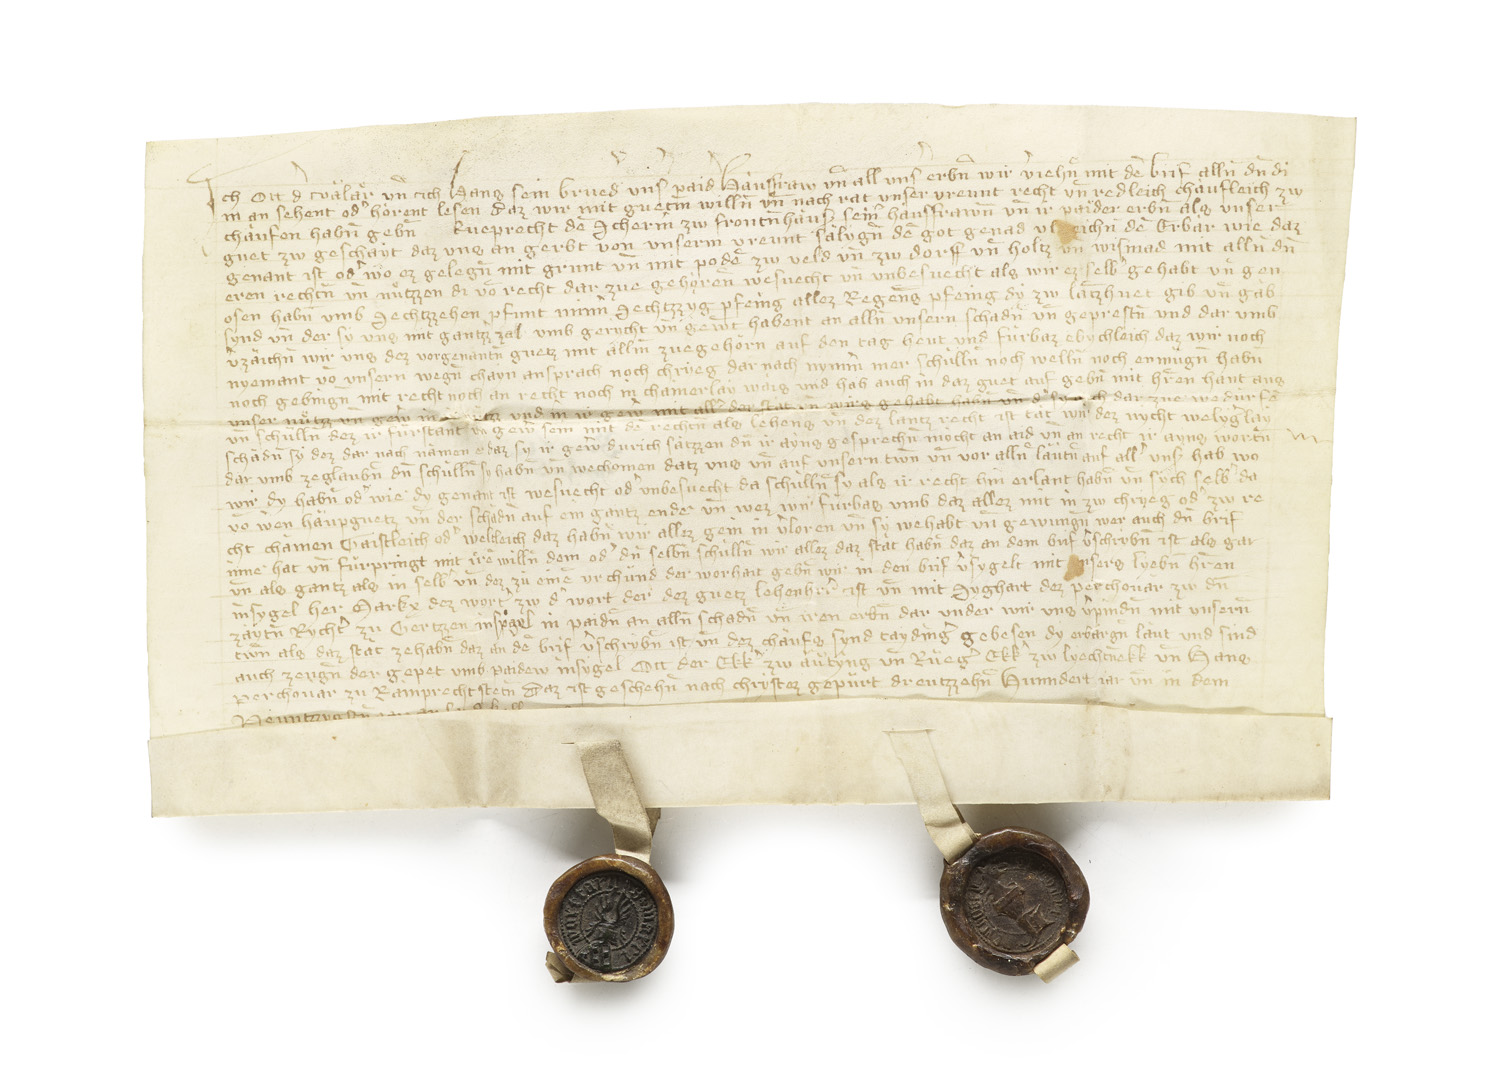 Ich Ott d͛ Wälär vn̄ ich Hans sein brued͛ vns͛ paid͛ Hausfraw vn̄ all vns͛ erbn̄ wir v͛iehn̄ mit dē brif alln̄ dn̄ di
in an sehent od͛ hörent lesen daz wir mit guetm̄ willn̄ vn̄ nach rat vnser vreunt recht vn̄ redleich chäufleich zw
chaufen habn̄ gebn̄ Rueprecht dē Scherm̄ zw frontn̄haus sein͛ hausfrawn̄ vn̄ ir paider erbn̄ als vnser
guet zw geschäyt daz vns an gerbt von vnserm vreunt sälygn̄ dē got genad vlreichn̄ dē Erbär wie daz
genant ist od͛ wo ez gelegn̄ mit grunt vn̄ mit podē zw veld vn̄ zw dorff vn̄ holtz vn̄ wismad mit alln̄ dn̄
eren rechtn̄ vn̄ nützzen di vō recht dar zue gehörēn wesuecht vn̄ vnbesuecht als wir ez selb͛ gehabt vn̄ gen
osen habn̄ vmb Sechtzzehen pfunt Sechtzzyg pfeing allez Regens͛ pfeing dy zw lantzhuet gib vn̄ gäb
synd vn̄ der sy vns mit gantz͛ zal vmb gerycht vn̄ gew͛t habent an alln̄ vnsern schadn̄ vn̄ geprestn̄ vnd dar vmb
v͛zäichn̄ wir vns dez vorgenantn̄ guetz mit allm̄ zuegehörn auf den tag heut vnd fürbaz ebychleich daz wir noch
nyemant vō vnsern wegn̄ chayn ansprach noch chryeg dar nach nymm͛ mer schulln̄ noch welln̄ noch enmügn̄ habn̄
noch gebingn mit recht noch an recht noch in chainerlay wäis vnd hab auch in daz guet auf gebn̄ mit h͛ren hant aus
vnser nutz vn̄ gew͛ in vnd in ir gew͛ mit all͛ gehabt habn̄ vn̄ dar zue wedürfē
vn̄ schulln̄ dez ir fürstant vn̄ gew͛ sein mit dē rechtn̄ als lehens vn̄ dez lantz recht ist tät wir dez nycht welyg͛lay
schadn̄ sy dez dar nach nämen ez daz sy ir gew͛ durich satzzen dn̄ ir ayns gesprechn̄ möcht an aid vn̄ an recht ir ayns wortn̄
dar vmb zeglaubn̄ dn̄ schulln̄ sy habn̄ vn̄ wechomen datz vns vn̄ auf vnsern twn̄ vn̄ vor alln̄ läutn̄ auf all͛ vns͛ hab wo
wir dy habn̄ od͛ wie dy genant ist wesuecht od͛ vnbesuecht da schulln̄ sy als ir recht hin erlant habn̄ vn̄ sich selb͛ da
vō wen häupguetz vn̄ der schadn̄ auf ein gantz ende vn̄ wez wir fürbas vmb daz allez mit in zw chryeg od͛ zw re
cht chämen Gaistleich od͛ weltleich daz habn̄ wir allez gein in v͛loren vn̄ sy wehabt vn̄ gewunnn̄ wer auch dn̄ brif
inne hat vn̄ fürpringt mit ire willn̄ dem od͛ dn̄ selbn̄ schulln̄ wir allez daz stät habn̄ daz an dem brif v͛schribn̄ ist als gar
vn̄ als gantz als in selb͛ vn̄ dez zu einē vrchund der worhait gebn̄ wir in den brif v͛sygelt mit vnsers lyebn̄ h͛ren
insygel her Markx dez wort͛ zw d͛ wort der dez guetz lehenh͛r ist vn̄ mit Syghart dez perchouär zw dn̄
zäytn̄ Rycht͛ zu Gertzen insygel in paidn̄ an alln̄ schadn̄ vn̄ iren erbn̄ dar vnder wir vns v͛pindn̄ mit vnsern̄
twn̄ als daz stät zehabn̄ daz an dē brif v͛schrybn̄ ist vn̄ dez chäufs synd tayding͛ gebesen dy erbärgn̄ läut vnd sind
auch zeugn̄ der gepet vmb paidew insygel Ott der Ekk͛ zw äutyng vn̄ Rüeg͛ Ekk͛ zw lyechtnekk vn̄ Hans
perchouär zu Ramprechtsteten Daz ist geschehn̄ nach chrystez gepürt dreutzzehn̄ Hunndert iar vn̄ in dem